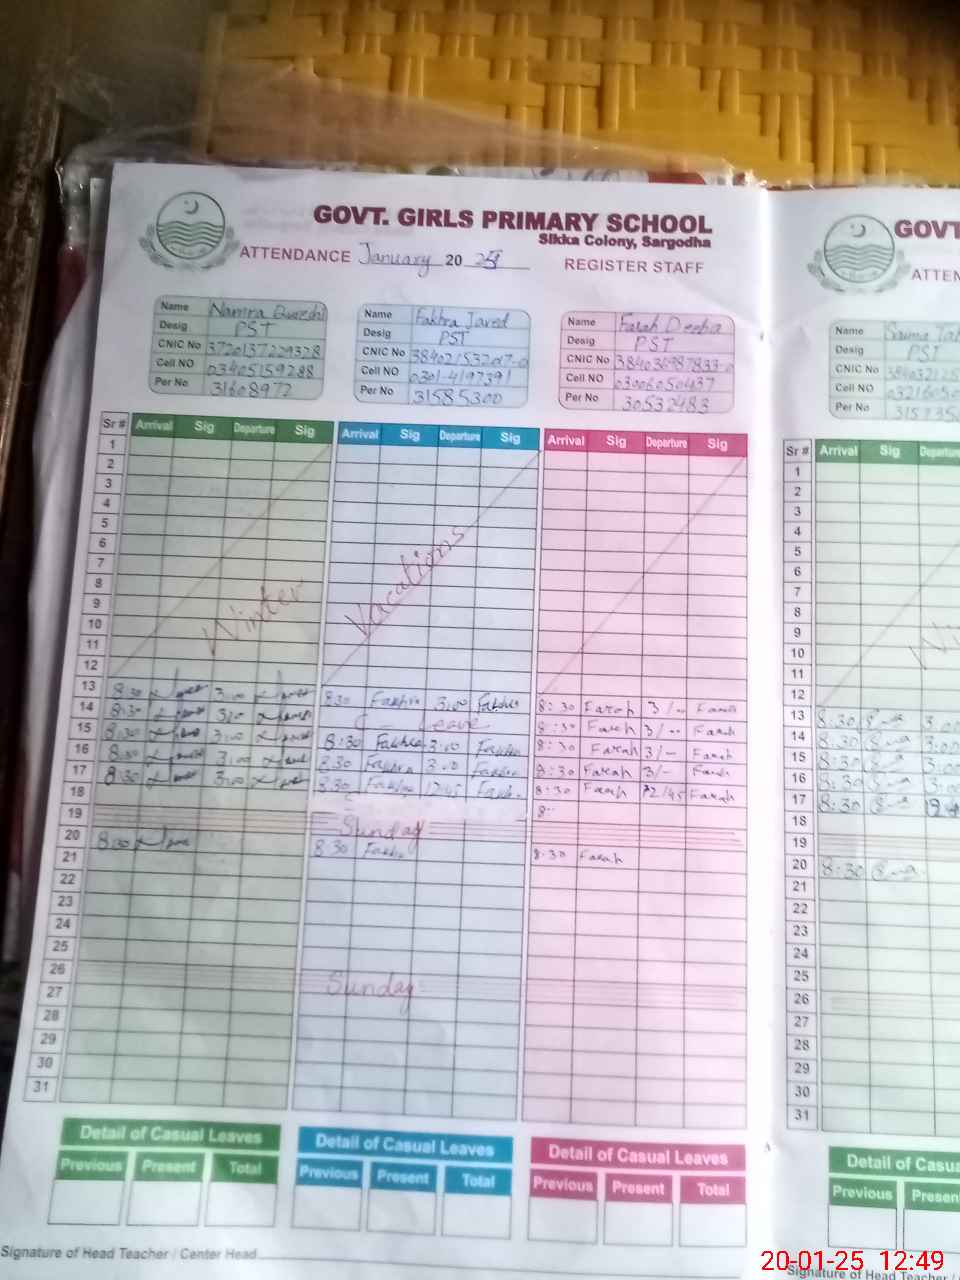 GOVT. GIRLS PRIMARY SCHOOL
Sikka Colony, Sargodha
ATTENDANCE January 20 25 REGISTER STAFF
Name Namra Qureshi
Desig PST
CNIC No
Cell NO 03405159288
Per No 31608972
Name Fakhra Javed
Desig PST
CNIC No
Cell NO 0301-4197391
Per No 31585300
Name Farah Deeba
Desig PST
CNIC No
Cell NO 03006050437
Per No 30532483
Sr # Arrival Sig Departure Sig Arrival Sig Departure Sig Arrival Sig Departure Sig
1
2
3
4
5
6
7
8
9
10
11
12
Winter Vacations
13 8:30 3:00 8:30 Fakhra 3:00 Fakhra 8:30 Farah 3/-- Farah
14 8:30 3:00 Leave 8:30 Farah 3/-- Farah
15 8:30 3:00 8:30 Fakhra 3:00 Fakhra 8:30 Farah 3/- Farah
16 8:30 3:00 8:30 Fakhra 3:00 Fakhra 8:30 Farah 3/- Farah
17 8:30 3:00 8:30 Fakhra 12:45 Fakhra 8:30 Farah 12/45 Farah
18 8--
19 Sunday
20 8:30 8:30 Fakhra 8:30 Farah
21
22
23
24
25
26 Sunday
27
28
29
30
31
Detail of Casual Leaves
Previous Present Total
Detail of Casual Leaves
Previous Present Total
Detail of Casual Leaves
Previous Present Total
Signature of Head Teacher / Center Head
GOVT
ATTEN
Name
Desig PST
CNIC No
Cell NO
Per No
Sr # Arrival Sig Departure
1
2
3
4
5
6
7
8
9
10
11
12
13 8:30 3:00
14 8:30 3:00
15 8:30 3:00
16 8:30 3:00
17 8:30
18
19
20 8:30
21
22
23
24
25
26
27
28
29
30
31
Detail of Casua
Previous Present
Signature of Head Teacher
20-01-25 12:49